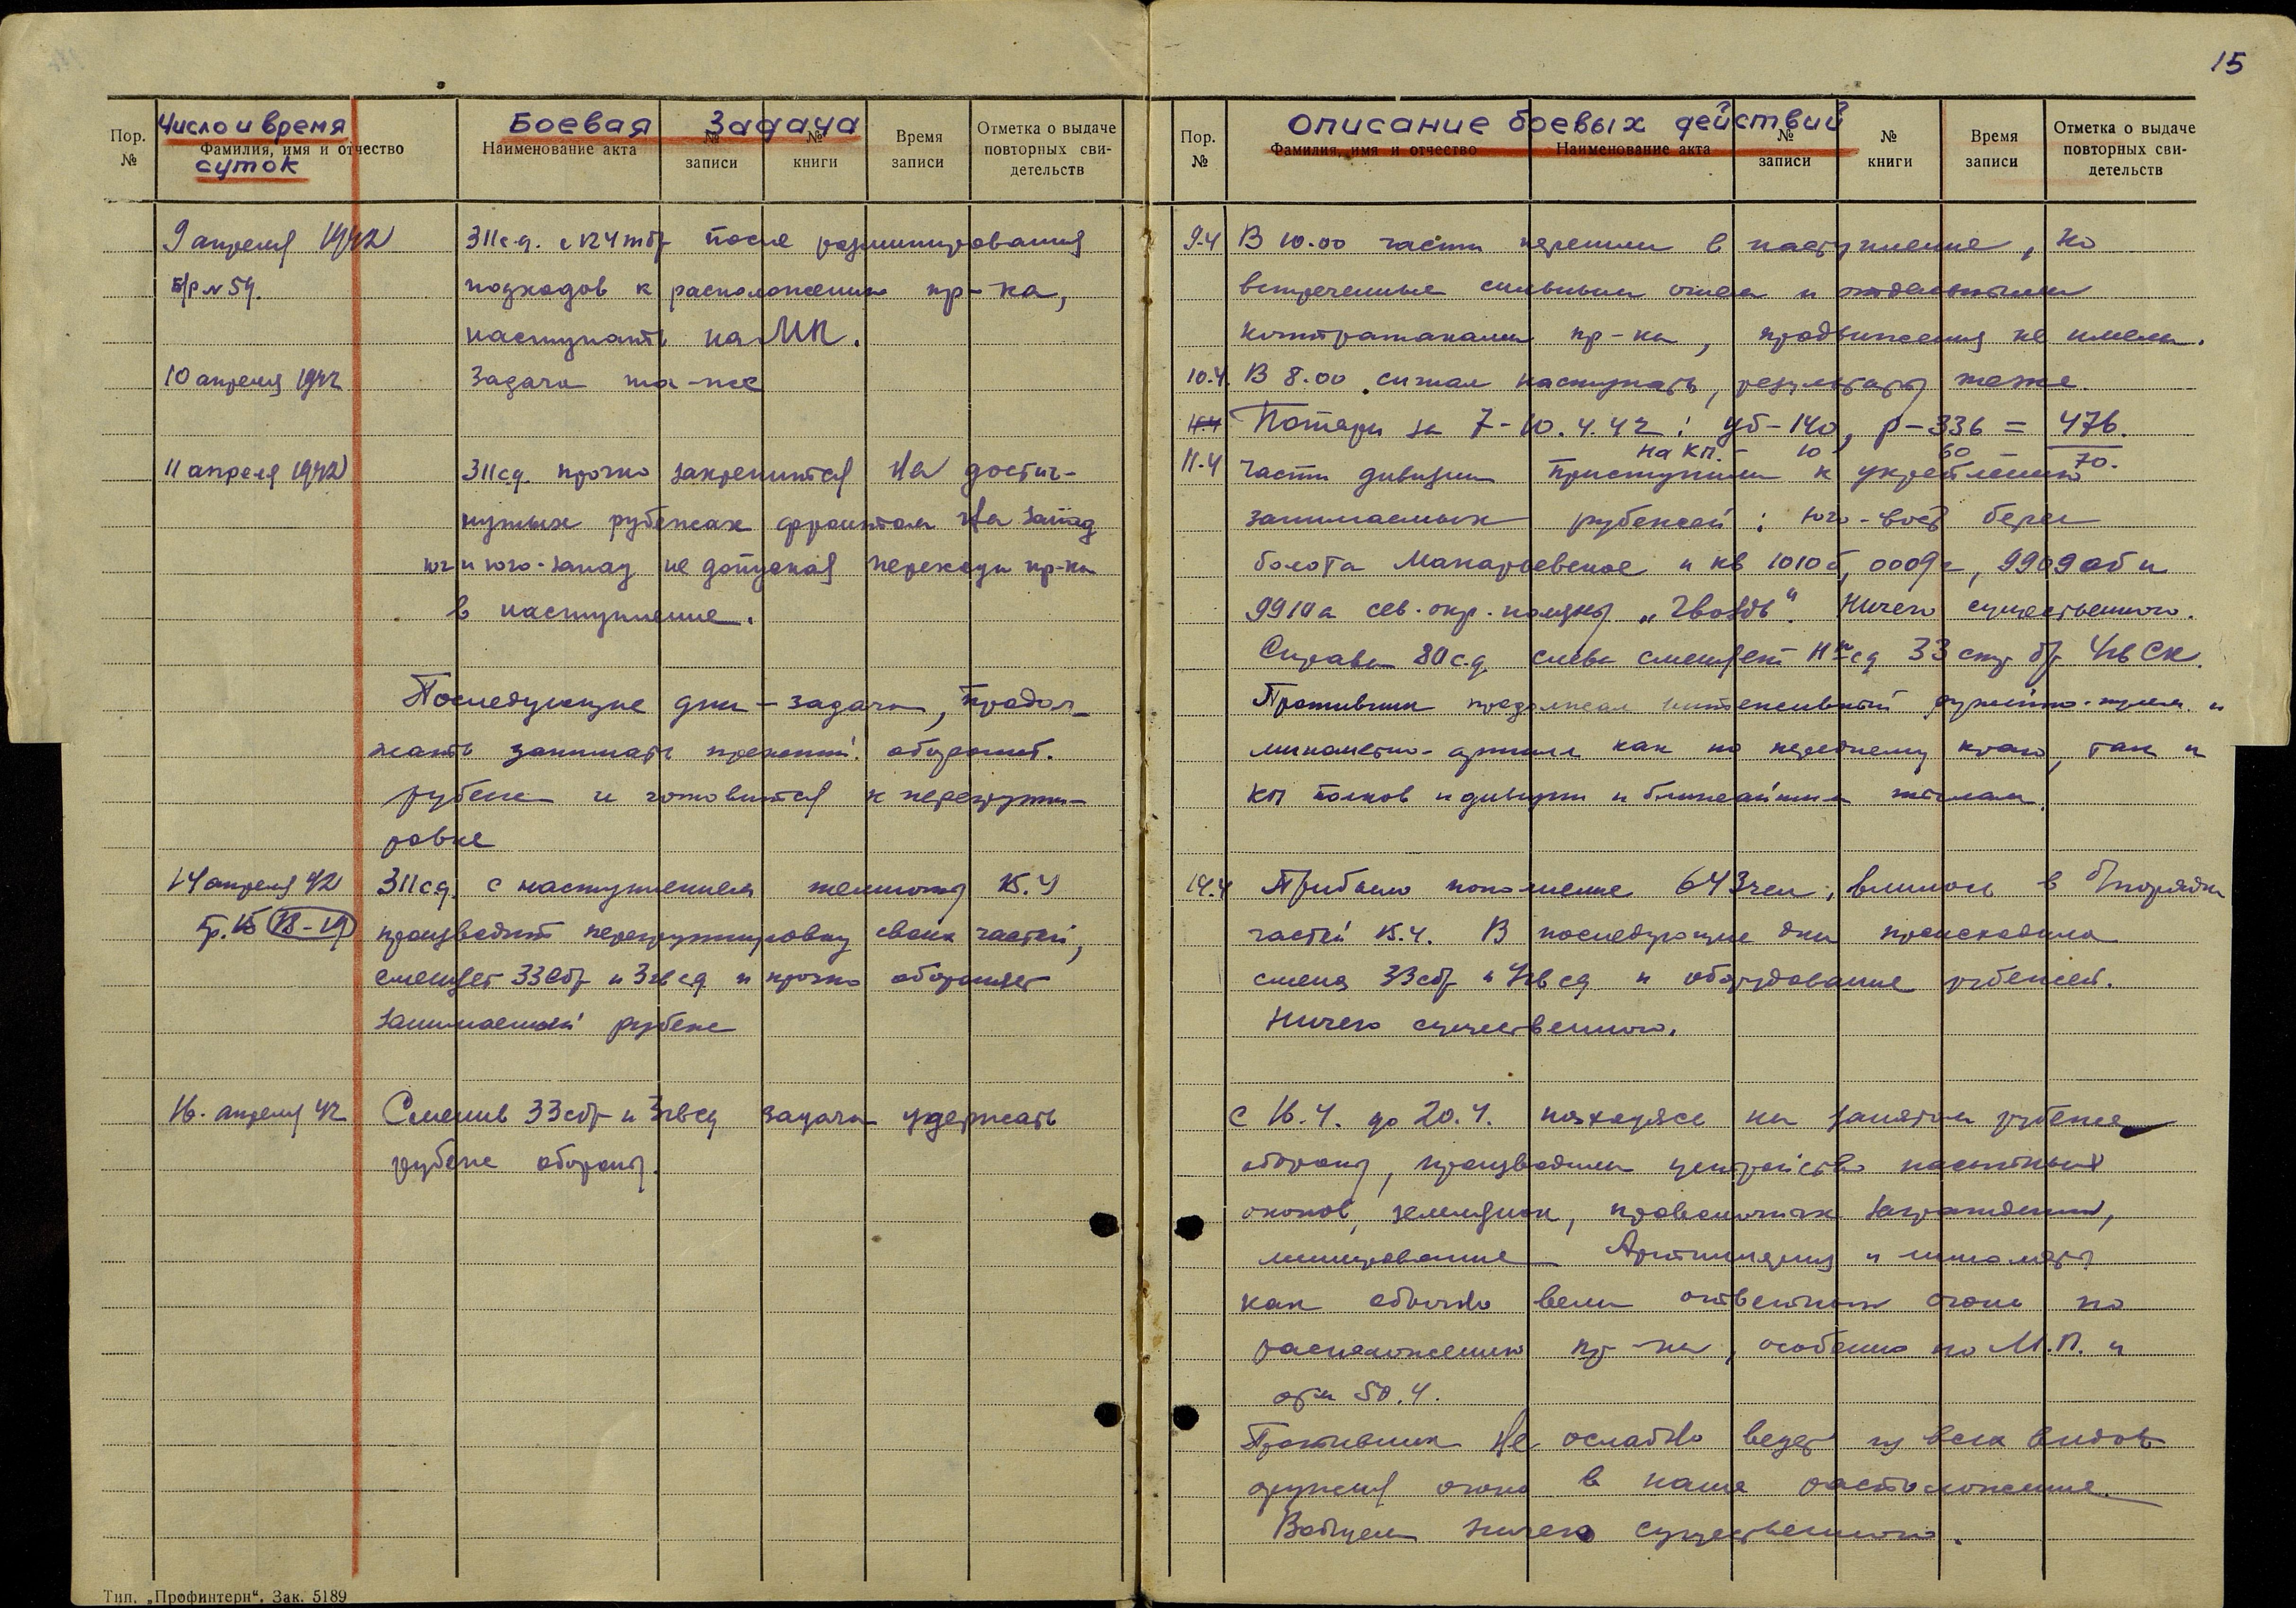 15
Число и время суток
Боевая задача
Пор. №
Фамилия, имя и отчество
Наименование акта
№ записи
№ книги
Время записи
Отметка о выдаче повторных сви-детельств
9 апреля 1942
Б/р № 59.
311 с.д. с 124 тбр после разминирования
подходов к расположению пр-ка,
наступать на МП.
10 апреля 1942
Задача та-же
11 апреля 1942
311 сд. прочно закрепится на достиг-
нутых рубежах фронтом на запад
юг и юго-запад не допуская перехода пр-ка
в наступление.
Последующие дни – задача, продол-
жать занимать прежний оборонит.
рубеж и готовится к перегруппи-
ровке
14 апреля 42
311 с.д. с наступлением темноты 15.4
производит перегруппировку своих частей,
сменяет 33 сбр и 3 гв сд и прочно обороняет
занимаемый рубеж
16. апреля 42
Сменив 33 сбр и 3 гв сд задача удержать
рубеж обороны.
Тип. „Профинтерн“. Зак. 5189
Описание боевых действий
Пор. №
Фамилия, имя и отчество
Наименование акта
№ записи
№ книги
Время записи
Отметка о выдаче повторных сви-детельств
9.4 В 10.00 части перешли в наступление, но
встреченные сильным огнем и отдельными
контратаками пр-ка, продвижения не имели.
10.4. В 8.00 сигнал наступать, результаты тоже
11.4 Потери за 7-10.4.42: уб-140, р-336 = 476.
на КП. – 10 60 – 70.
11.4 Части дивизии приступили к укреплению
занимаемых рубежей: юго-вост берег
болота Макарьевское и кв 1010б, 0009г, 9909аб и
9910а сев. окр. поляны „Гвоздь“. Ничего существенного.
Справа 80 с.д. слева сменяет 11ю сд 33 стр бр 4 гв СК.
Противник продолжал интенсивный ружейно-пулем. и
минометно-артилл как по переднему краю, так и
КП полков и дивизии и ближайшим тылам.
14.4 Прибыло пополнение 643 чел, влилось в б/порядки
частей 15.4. В последующие дни происходила
смена 33 сбр и 4 гв сд и оборудование рубежей.
Ничего существенного.
С 16.4. до 20.4. находясь на занятом рубеже
обороны, производили устройство насыпных
окопов, землянок, проволочных заграждений,
минирование Артиллерия и минометы
как обычно вели ответный огонь по
расположению пр-ка, особенно по М.П. и
50.4.
Противник не ослабно ведет из всех видов
оружия огонь в наше расположение.
Вобщем ничего существенного.